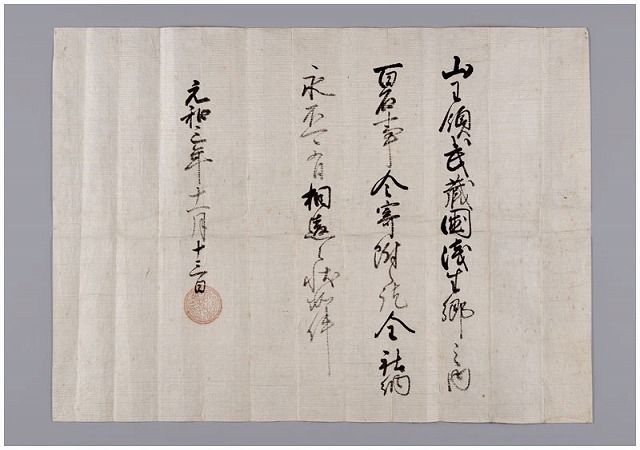 山王領武蔵国浅生郷之内
百石事令寄附訖全社納
永不可有相違之状如件
元和三年十一月十三日